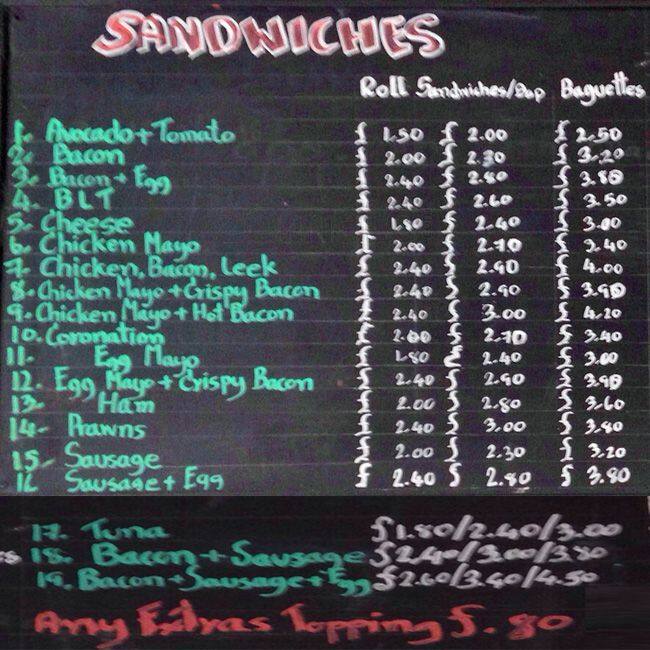 SANDWICHES
Roll Sandwiches/Bap Baguettes
1. Avocado + Tomato £ 1.50 £ 2.00 £ 2.50
2. Bacon £ 2.00 £ 2.30 £ 3.20
3. Bacon + Egg £ 2.40 £ 2.80 £ 3.80
4. BLT £ 2.40 £ 2.60 £ 3.50
5. Cheese £ 1.80 £ 2.40 £ 3.00
6. Chicken Mayo £ 2.00 £ 2.70 £ 3.40
7. Chicken, Bacon, Leek £ 2.40 £ 2.90 £ 4.00
8. Chicken Mayo + Crispy Bacon £ 2.40 £ 2.90 £ 3.90
9. Chicken Mayo + Hot Bacon £ 2.40 £ 3.00 £ 4.20
10. Coronation £ 2.00 £ 2.70 £ 3.40
11. Egg Mayo £ 1.80 £ 2.40 £ 3.00
12. Egg Mayo + Crispy Bacon £ 2.40 £ 2.90 £ 3.90
13. Ham £ 2.00 £ 2.80 £ 3.60
14. Prawns £ 2.40 £ 3.00 £ 3.80
15. Sausage £ 2.00 £ 2.30 £ 3.20
16 Sausage + Egg £ 2.40 £ 2.80 £ 3.80
17. Tuna £1.80/2.40/3.00
18. Bacon + Sausage £2.40/3.00/3.80
19. Bacon + Sausage + Egg £2.60/3.40/4.50
Any Extras Topping £.80